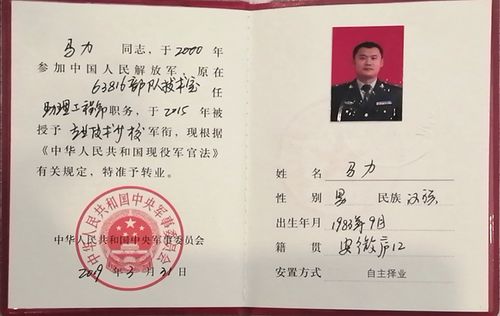 马力 同志，于2000年
参加中国人民解放军，原在
63816部队技术室 任
助理工程师职务，于2015年被
授予 专业技术少校 军衔，现根据
《中华人民共和国现役军官法》
有关规定，特准予转业。
中华人民共和国中央军事委员会
中华人民共和国中央军事委员会
2019年3月31日
姓名 马力
性别 男 民族 汉族
出生年月 1983年9月
籍贯
安置方式 自主择业